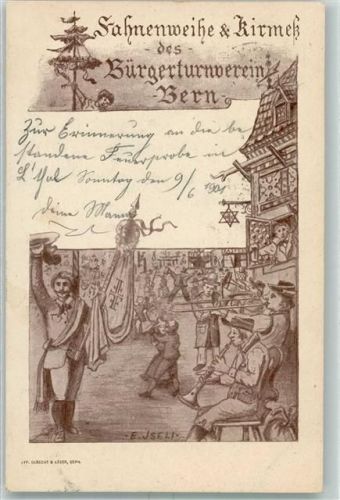 Fahnenweihe & Kirmeß
- des -
Bürgerturnverein
- Bern -
Zur Erinnerung an die be
standene Feuerprobe in
L'thal Sonntag den 9/6 1901
deine
E. JSELI